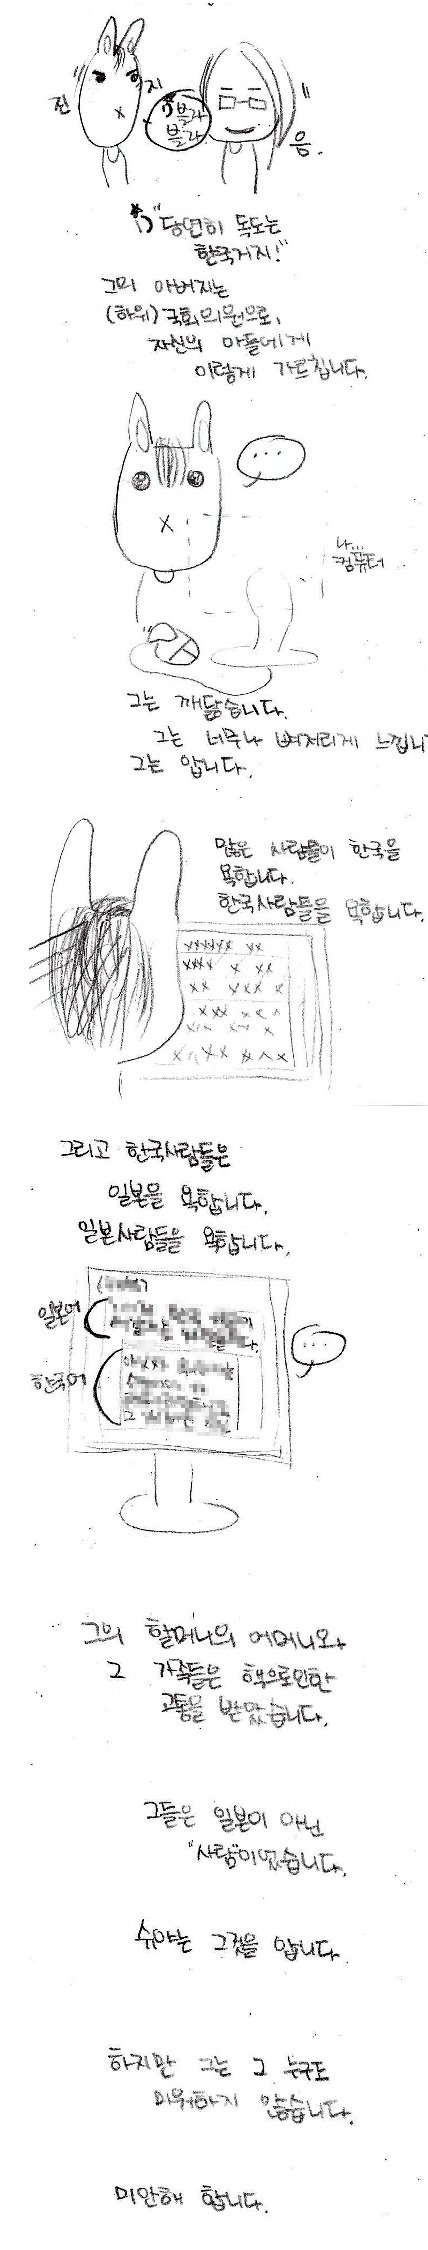 진
지
블라
블라
음.
"당연히 독도는
한국거지!"
그의 아버지는
(하위)국회의원으로,
자신의 아들에게
이렇게 가르칩니다.
...
나...
컴퓨터
그는 깨닳습니다.
그는 너무나 뼈저리게 느낍니다
그는 압니다.
많은 사람들이 한국을
욕합니다.
한국사람들을 욕합니다.
xxxxxx xx
xxxx x xx
xx xxx x
그리고 한국사람들은
일본을 욕합니다.
일본사람들을 욕합니다.
일본어
...
한국어
그의 할머니의 어머니와
그 가족들은 핵으로인한
고통을 받았습니다.
그들은 일본이 아닌
"사람"이었습니다.
슈야는 그것을 압니다.
하지만 그는 그 누구도
미워하지 않습니다.
미안해 합니다.